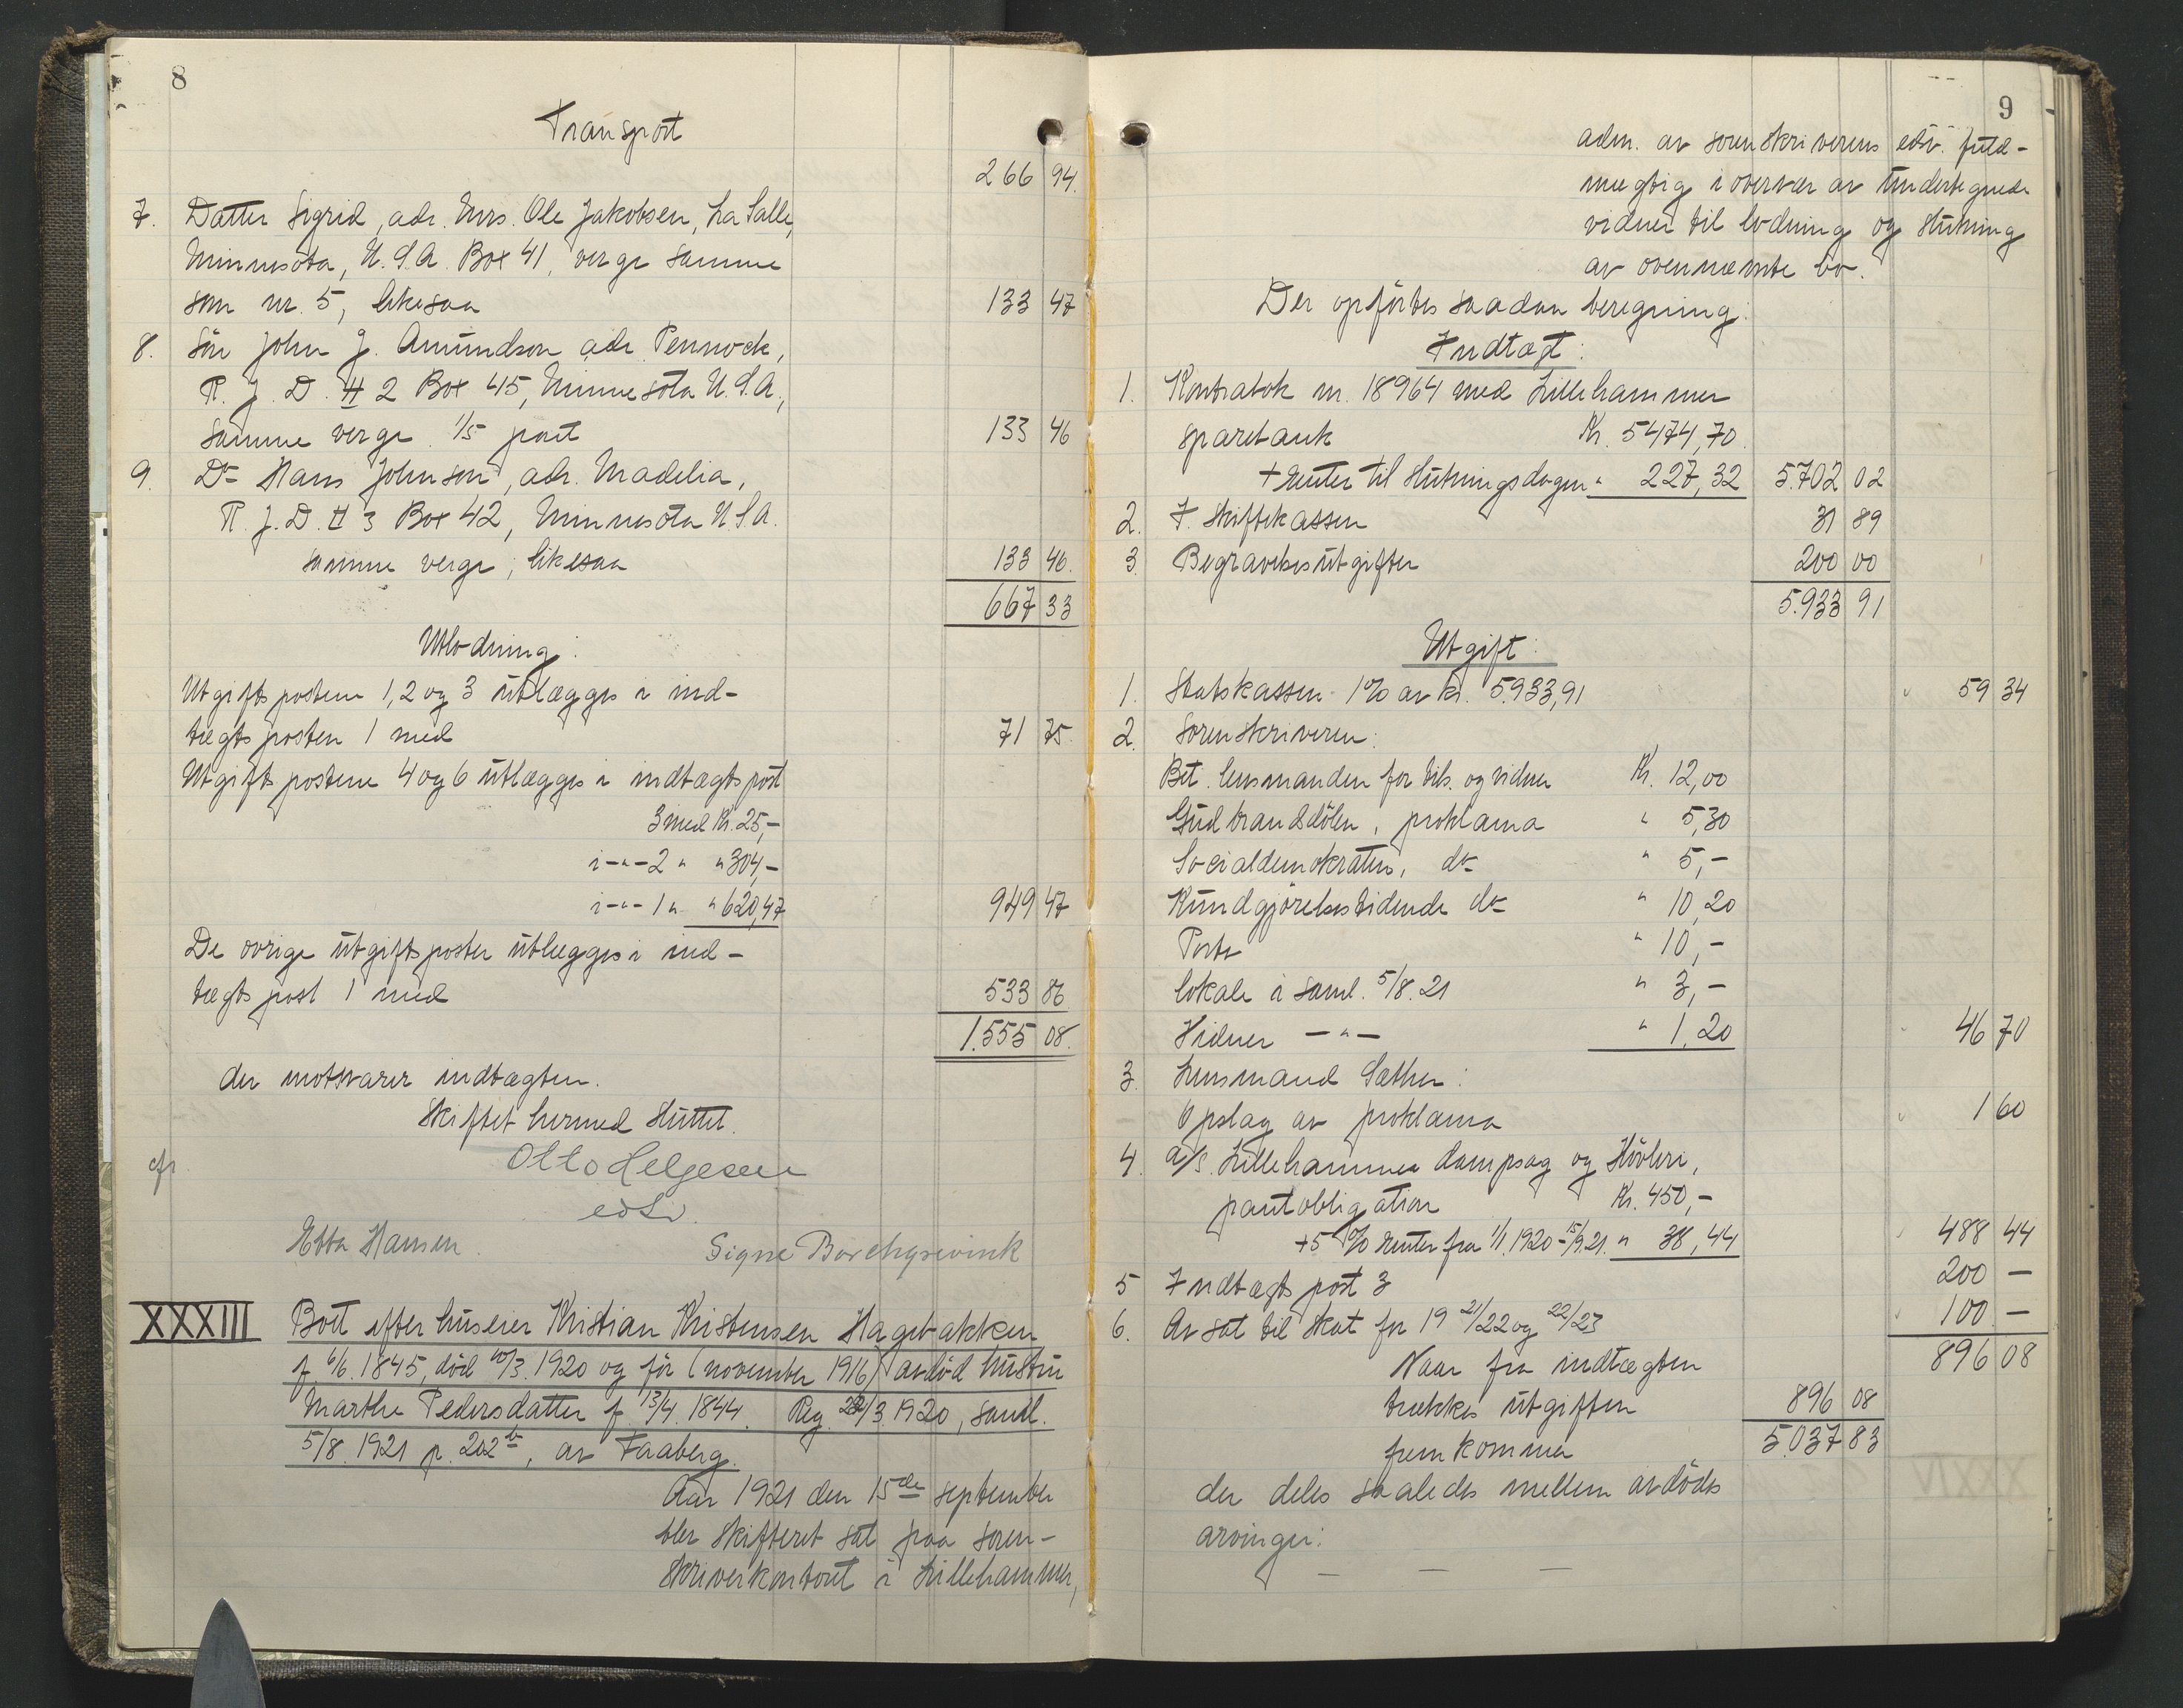 8
Transport
266 94.
7. Datter Sigrid, adr. Mrs. Ole Jakobsen, La Salle,
Minnesota, U.S.A. Box 41, verge samme
som nr. 5, likesaa 133 47
8. Søn John J. Amundson adr. Pennock,
R. J. D. # 2 Box 45, Minnesota U.S.A.,
samme verge. 1/5 part 133 46
9. Do Hans Johnson, adr. Madelia,
R. J. D. # 3 Box 42, Minnesota U.S.A.
samme verge, likesaa 133 46.
667 33
Utlodning:
Utgiftsposterne 1, 2 og 3 utlægges i ind-
tægtsposten 1 med 71 75
Utgiftsposterne 4 og 6 utlægges i indtægtspost
3 med Kr. 25,-
i -"- 2 " " 304,-
i -"- 1 " " 620,47 949 47
De øvrige utgiftsposter utlægges i ind-
tægtspost 1 med 533 86
1.555 08.
der motsvarer indtægten.
Skiftet hermed sluttet.
Otto Helgesen
edsv.
Ebba Hansen. Signe Borchgrevink
XXXIII Boet efter huseier Kristian Kristensen Hagebakken
f. 6/6. 1845, død 10/3. 1920 og før (november 1916) avdød hustru
Marthe Pedersdatter f. 13/4. 1844. Reg. 22/3 1920, saml.
5/8. 1921 p. 202 b, av Faaberg.
Aar 1921 den 15de september
blev skifteret sat paa soren-
skriverkontoret i Lillehammer,
9
adm. av sorenskriverens edsv. fuld-
mægtig i overvær av undertegnede
vidner til lodning og slutning
av ovennævnte bo.
Der opførtes saadan beregning:
Indtægt:
1. Kontrabok nr. 18964 med Lillehammer
sparebank Kr. 5474,70.
+ renter til slutningsdagen " 227,32 5.702 02
2. I skiftekassen 31 89
3. Begravelsesutgifter 200 00
5.933 91
Utgift:
1. Statskassen 1% av kr. 5.933,91 59 34
2. Sorenskriveren:
Bet. lensmanden for tils. og vidner Kr. 12,00
Gudbrandsdølen, proklama " 5,30
Socialdemokraten, do " 5,-
Kundgjørelsestidende do " 10,20
Porto " 10,-
Lokale i saml. 5/8. 21 " 3,-
Vidner -"- " 1,20 46 70
3. Lensmand Sæther:
Opslag av proklama 1 60
4. A/S. Lillehammer dampsag og Høvleri,
pantobligation Kr. 450,-
+ 5 % renter fra 1/1. 1920 - 15/9. 21. " 38,44 488 44
5 Indtægtspost 3 200 -
6. Avsat til skat for 19 21/22 og 22/23 100 -
896 08
Naar fra indtægten
trækkes utgiften 896 08
fremkommer 5.037 83
der deles saaledes mellem avdødes
arvinger: